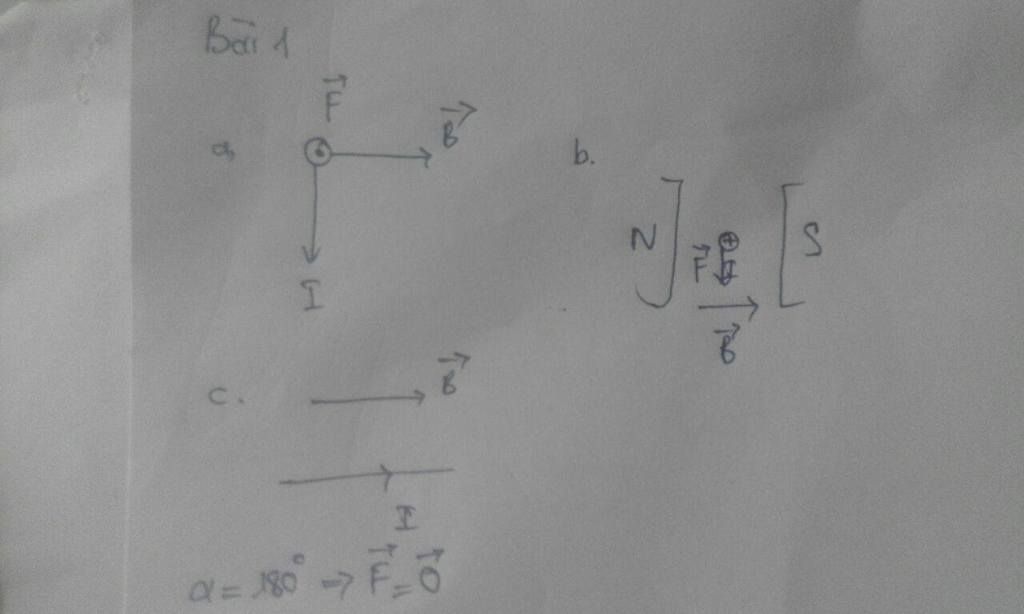 Bài 1
F⃗
a, B⃗
I
b.
N S
F⃗ I
B⃗
c. B⃗
I
α = 180° → F⃗ = 0⃗